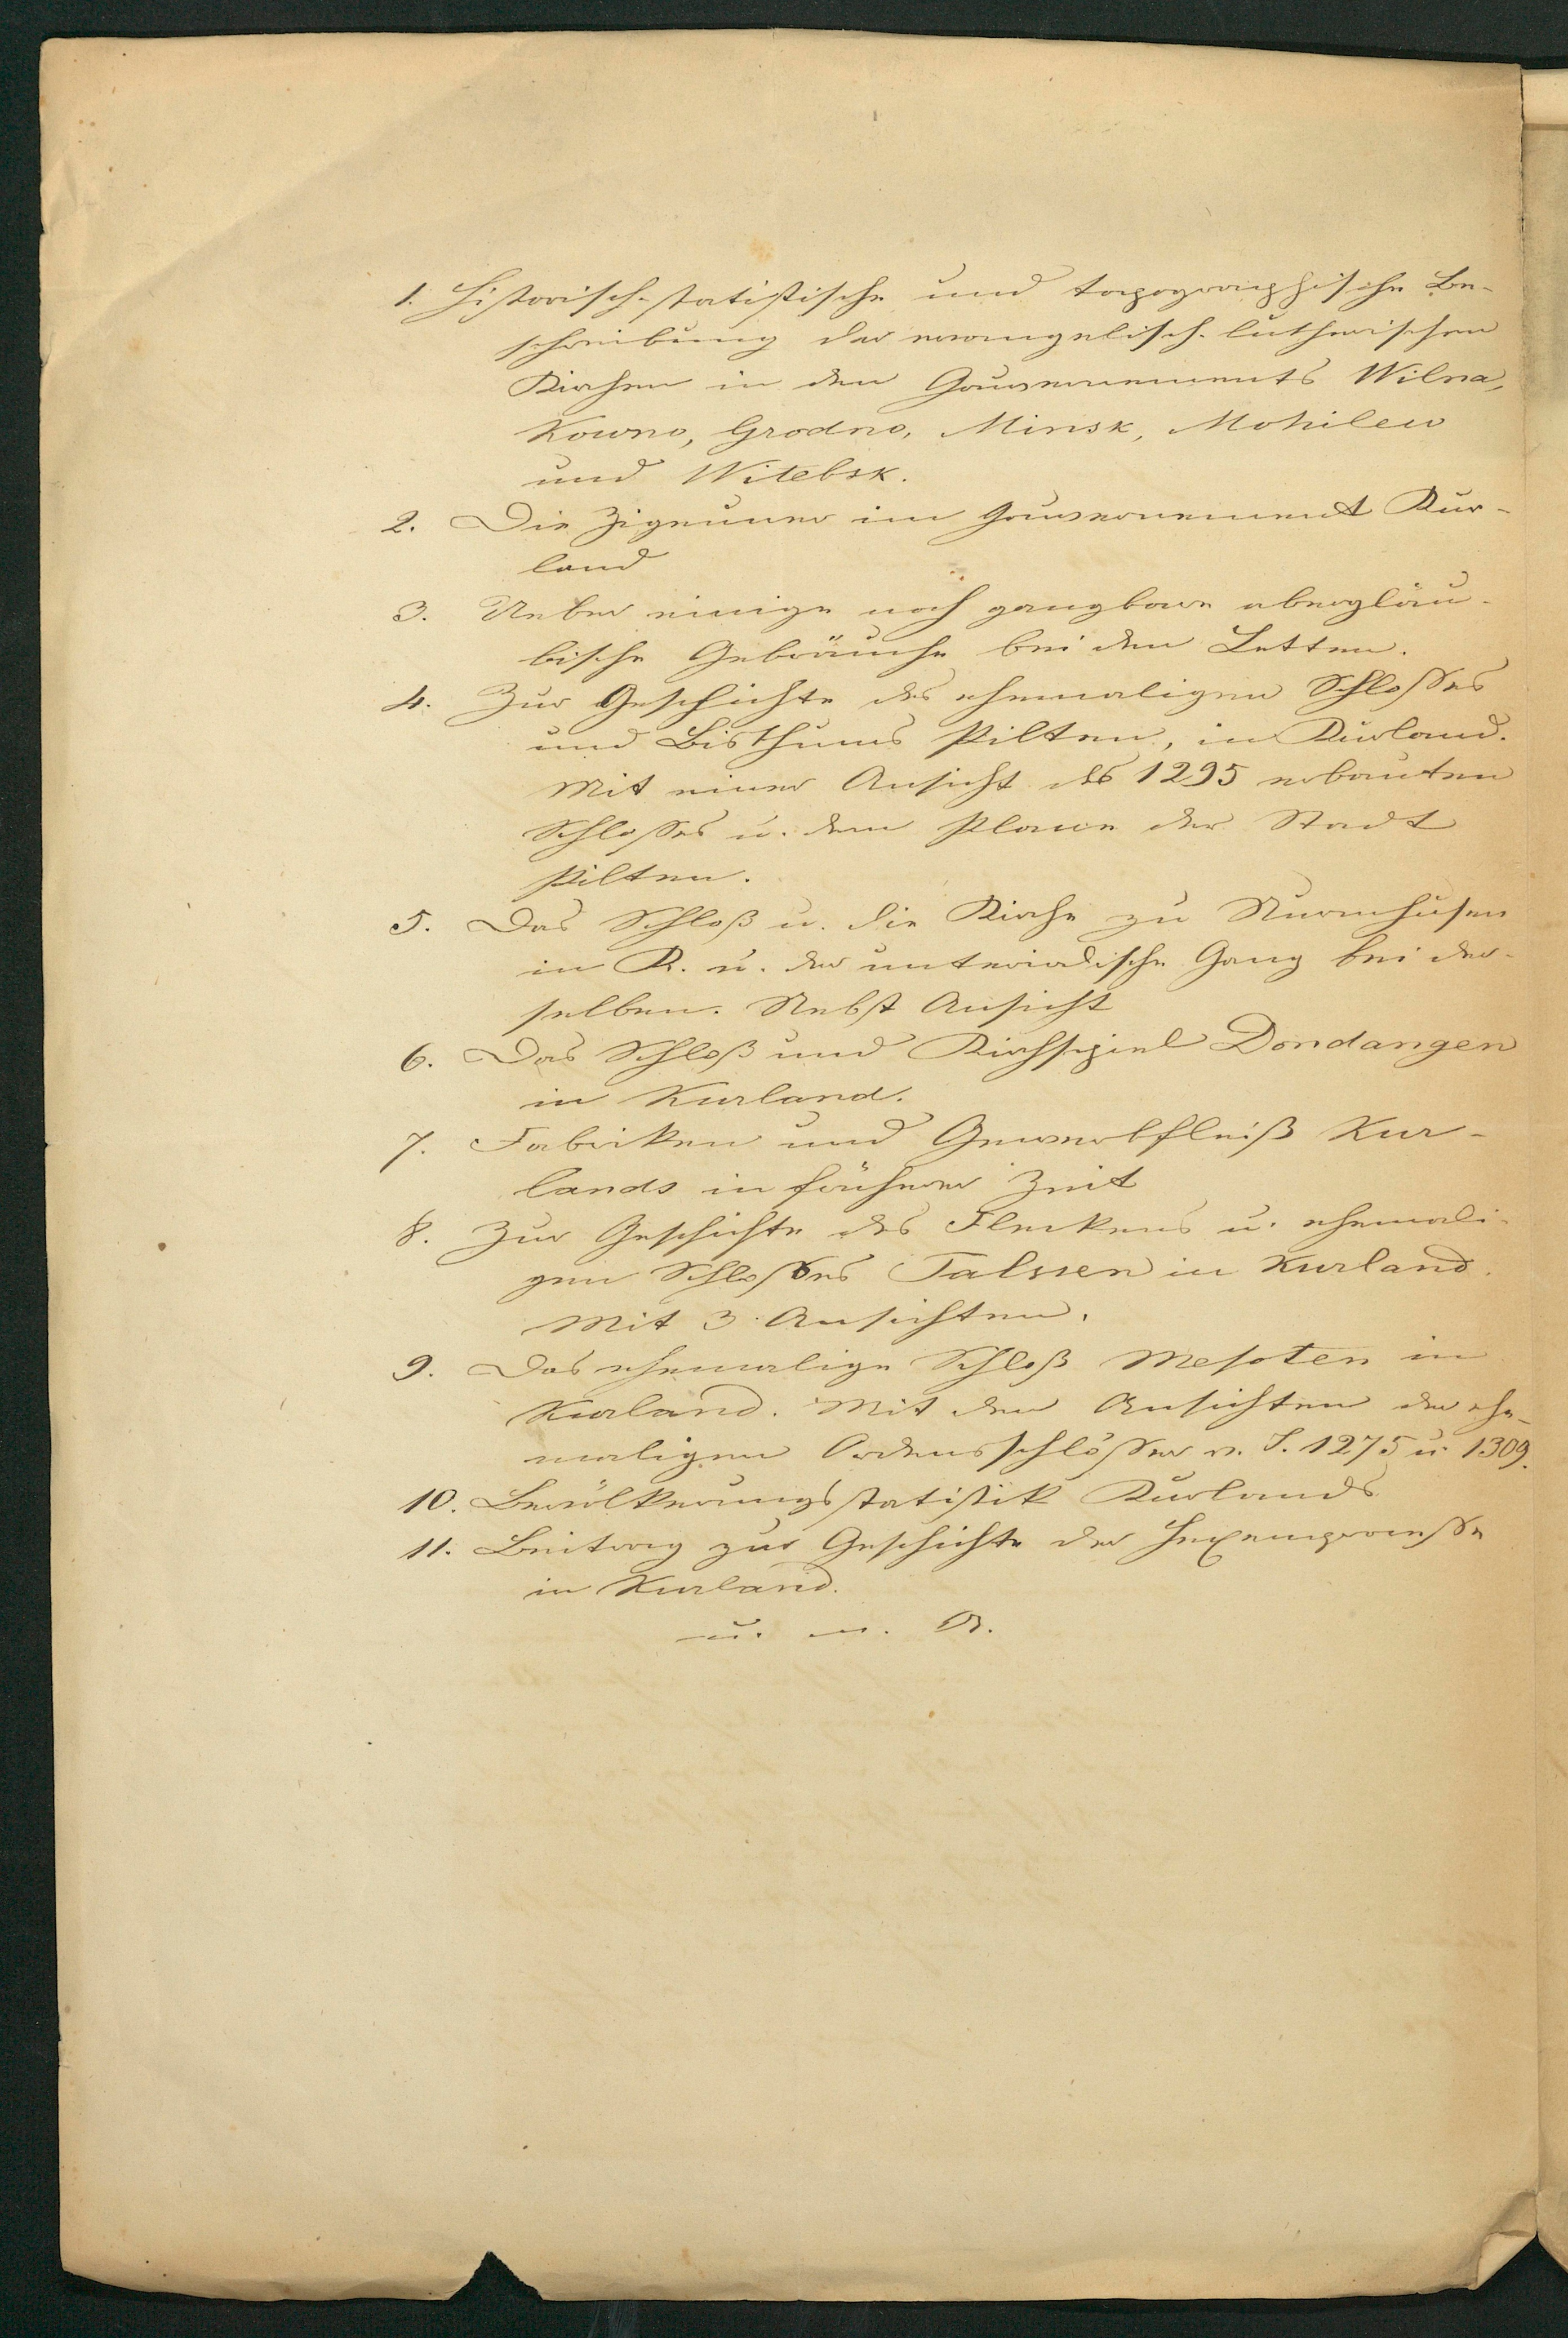 1. Historisch-statistische und topographische Be-
schreibung der evangelisch-lutherischen
Kirchen in den Gouvernements Wilna,
Kowno, Grodno, Minsk, Mohilew
und Witebsk.
2. Die Zigeuner im Gouvernement Kur-
land
3. Ueber einige noch gangbare abergläu-
bische Gebräuche bei den Letten.
4. Zur Geschichte des ehemaligen Schlosses
und Bisthums Pilten, in Kurland.
Mit einer Ansicht des 1295 erbauten
Schlosses u. dem Plane der Stadt
Pilten.
5. Das Schloß u. die Kirche zu Nurmhusen
in K. u. der unterirdische Gang bei der-
selben. Nebst Ansicht
6. Das Schloß und Kirchspiel Dondangen
in Kurland.
7. Fabriken und Gewerbfleiß Kur-
lands in früherer Zeit
8. Zur Geschichte des Fleckens u. ehemali-
gen Schlosses Talssen in Kurland.
Mit 3 Ansichten.
9. Das ehemalige Schloß Mesoten in
Kurland. Mit den Ansichten der ehe-
maligen Ordensschlösser v. J. 1275 u. 1309.
10. Bevölkerungsstatistik Kurlands
11. Beitrag zur Geschichte der Hexenprocesse
in Kurland.
u. m. A.